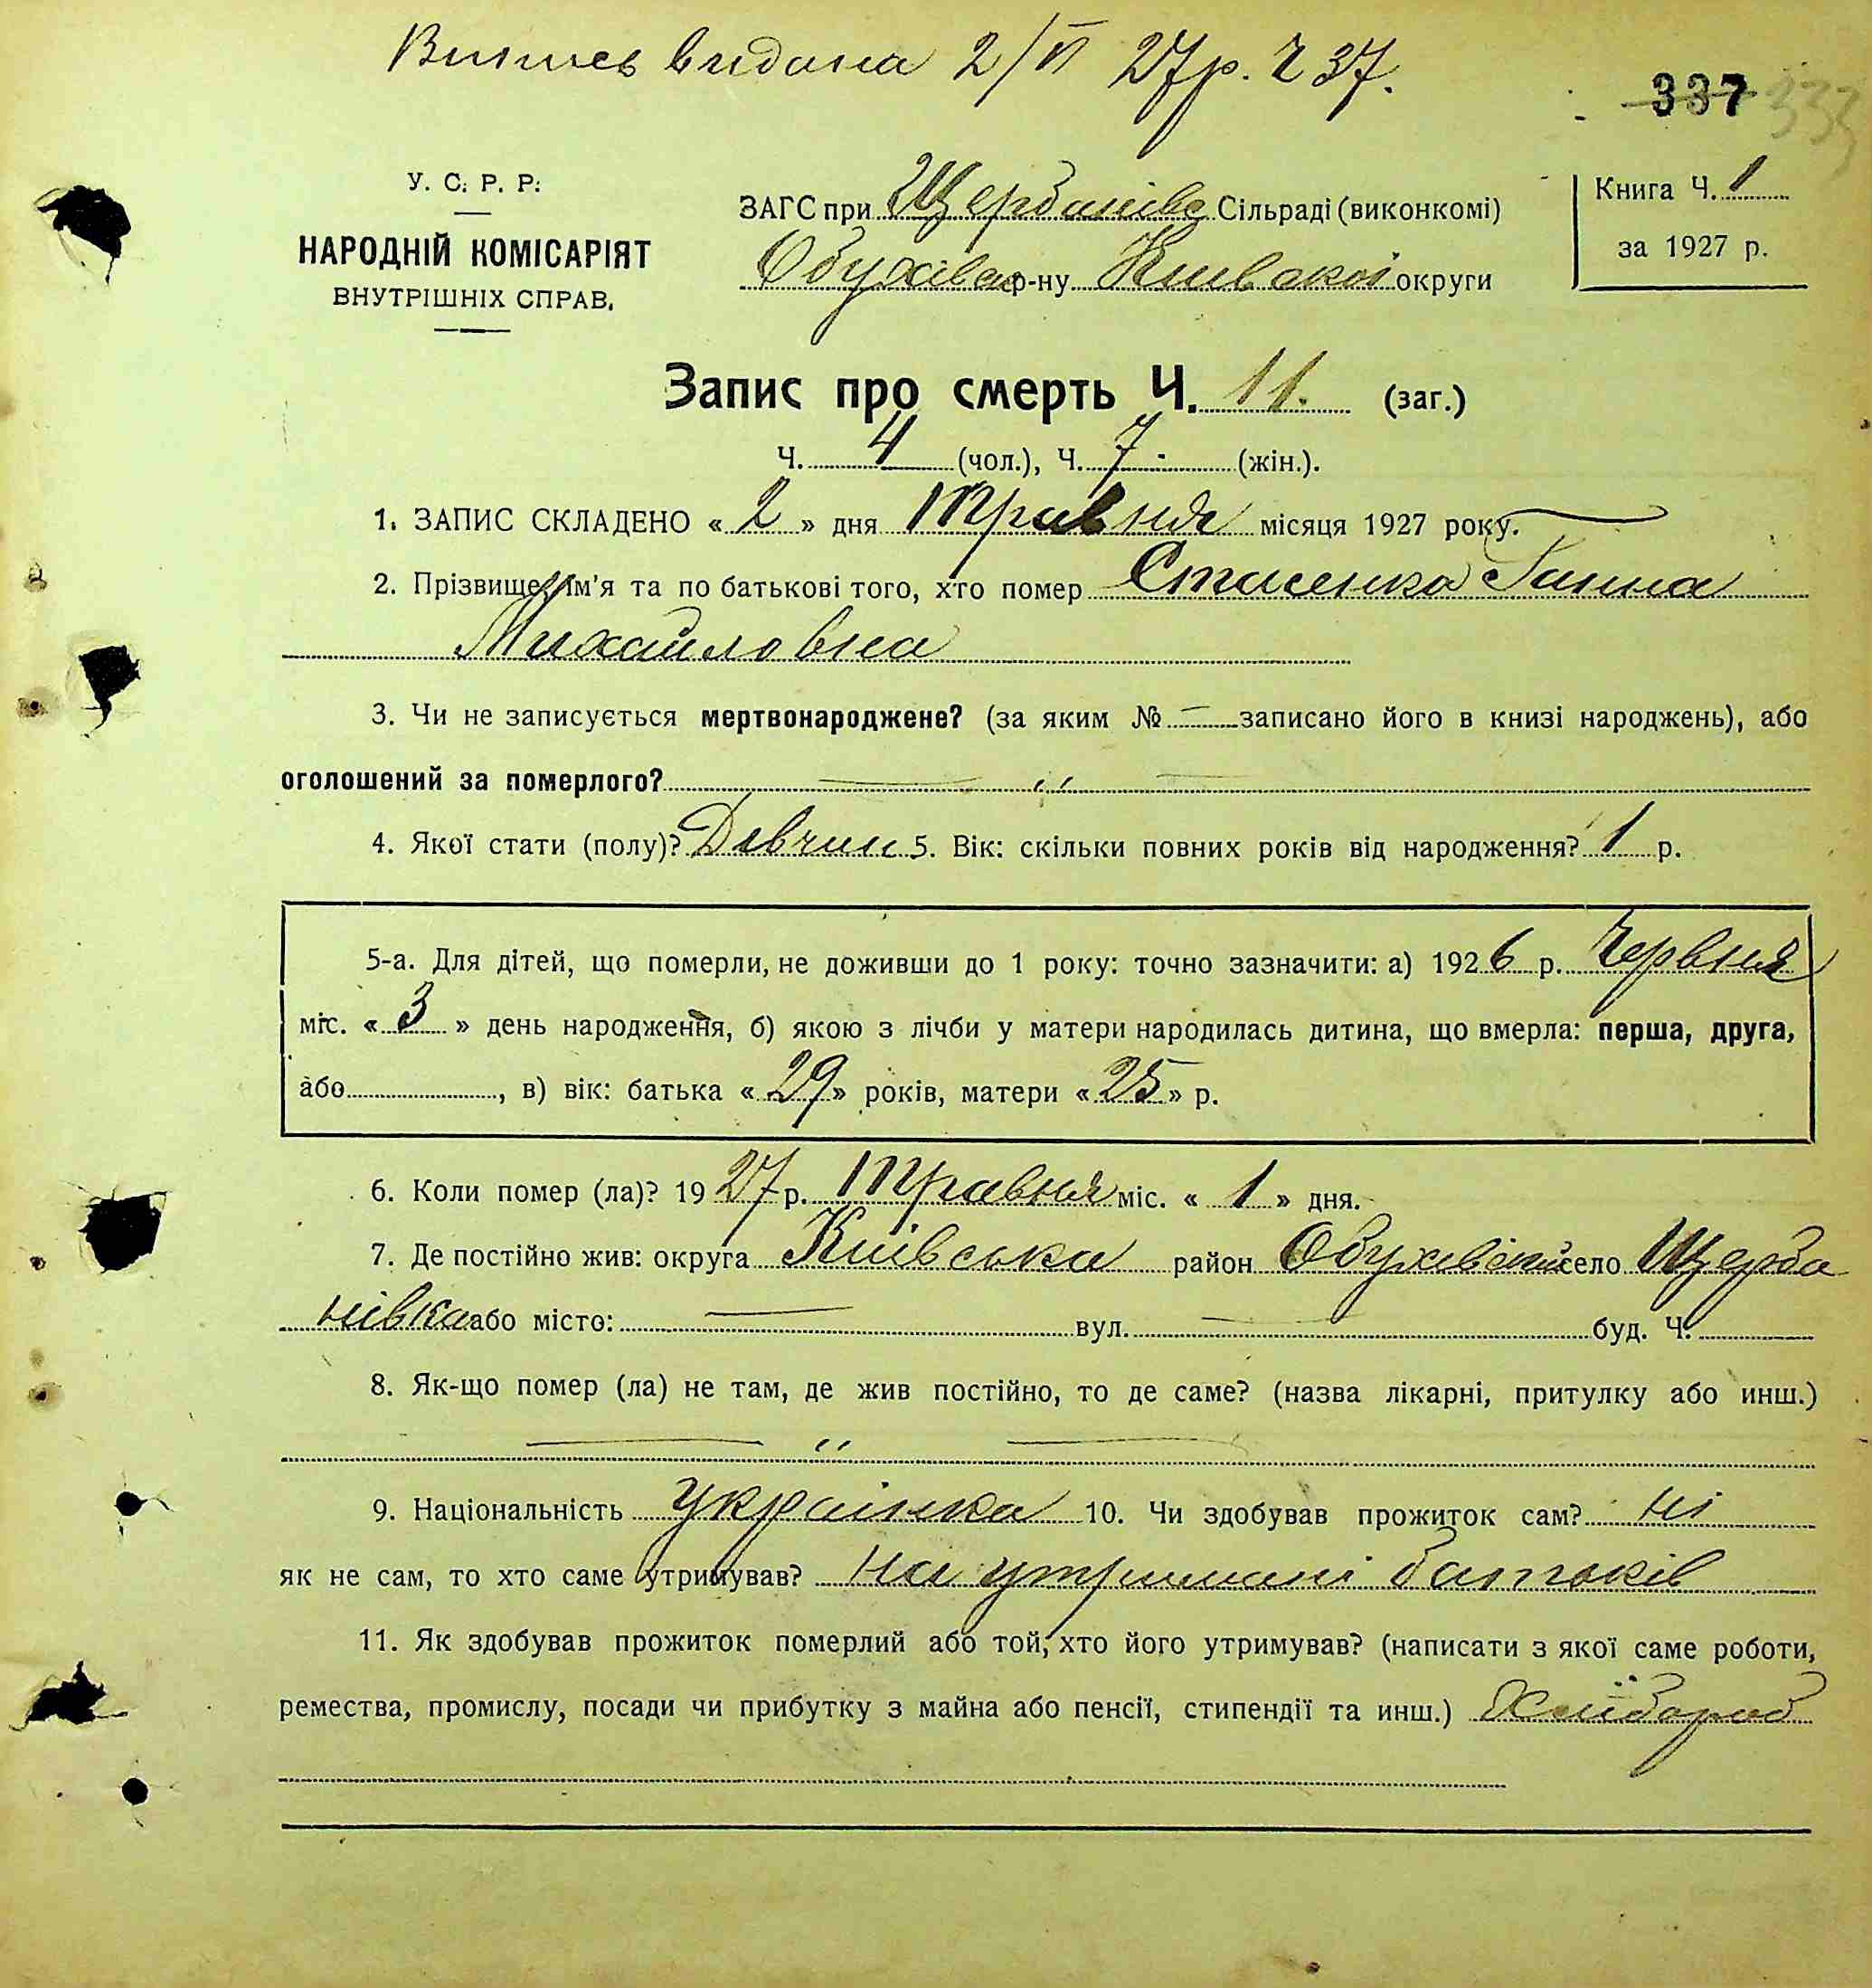 Випись видана 2/VI 27р. Ч 37.
337
333
У. С. Р. Р.
НАРОДНІЙ КОМІСАРІЯТ
ВНУТРІШНІХ СПРАВ.
ЗАГС при Щербанівс Сільраді (виконкомі)
Обухівськ р-ну Київської округи
Книга Ч. 1
за 1927 р.
Запис про смерть Ч. 11. (заг.)
Ч. 4 (чол.), Ч. 7 (жін.).
1. ЗАПИС СКЛАДЕНО « 2 » дня Травня місяця 1927 року.
2. Прізвище, ім'я та по батькові того, хто помер Стасенко Ганна
Михайловна
3. Чи не записується мертвонароджене? (за яким № — записано його в книзі народжень), або
оголошений за померлого? — „ —
4. Якої стати (полу)? Девчин 5. Вік: скільки повних років від народження? 1 р.
5-а. Для дітей, що померли, не доживши до 1 року: точно зазначити: а) 1926 р. Червня
міс. « 3 » день народження, б) якою з лічби у матери народилась дитина, що вмерла: перша, друга,
або , в) вік: батька « 29 » років, матери « 25 » р.
6. Коли помер (ла)? 19 27 р. Травня міс. « 1 » дня.
7. Де постійно жив: округа Київська район Обухівский село Щерба
нівка або місто: — вул. — буд. Ч.
8. Як-що помер (ла) не там, де жив постійно, то де саме? (назва лікарні, притулку або инш.)
— „ —
9. Національність українка 10. Чи здобував прожиток сам? ні
як не сам, то хто саме утримував? на утримані батьків
11. Як здобував прожиток померлий або той, хто його утримував? (написати з якої саме роботи,
ремества, промислу, посади чи прибутку з майна або пенсії, стипендії та инш.) Хлібороб